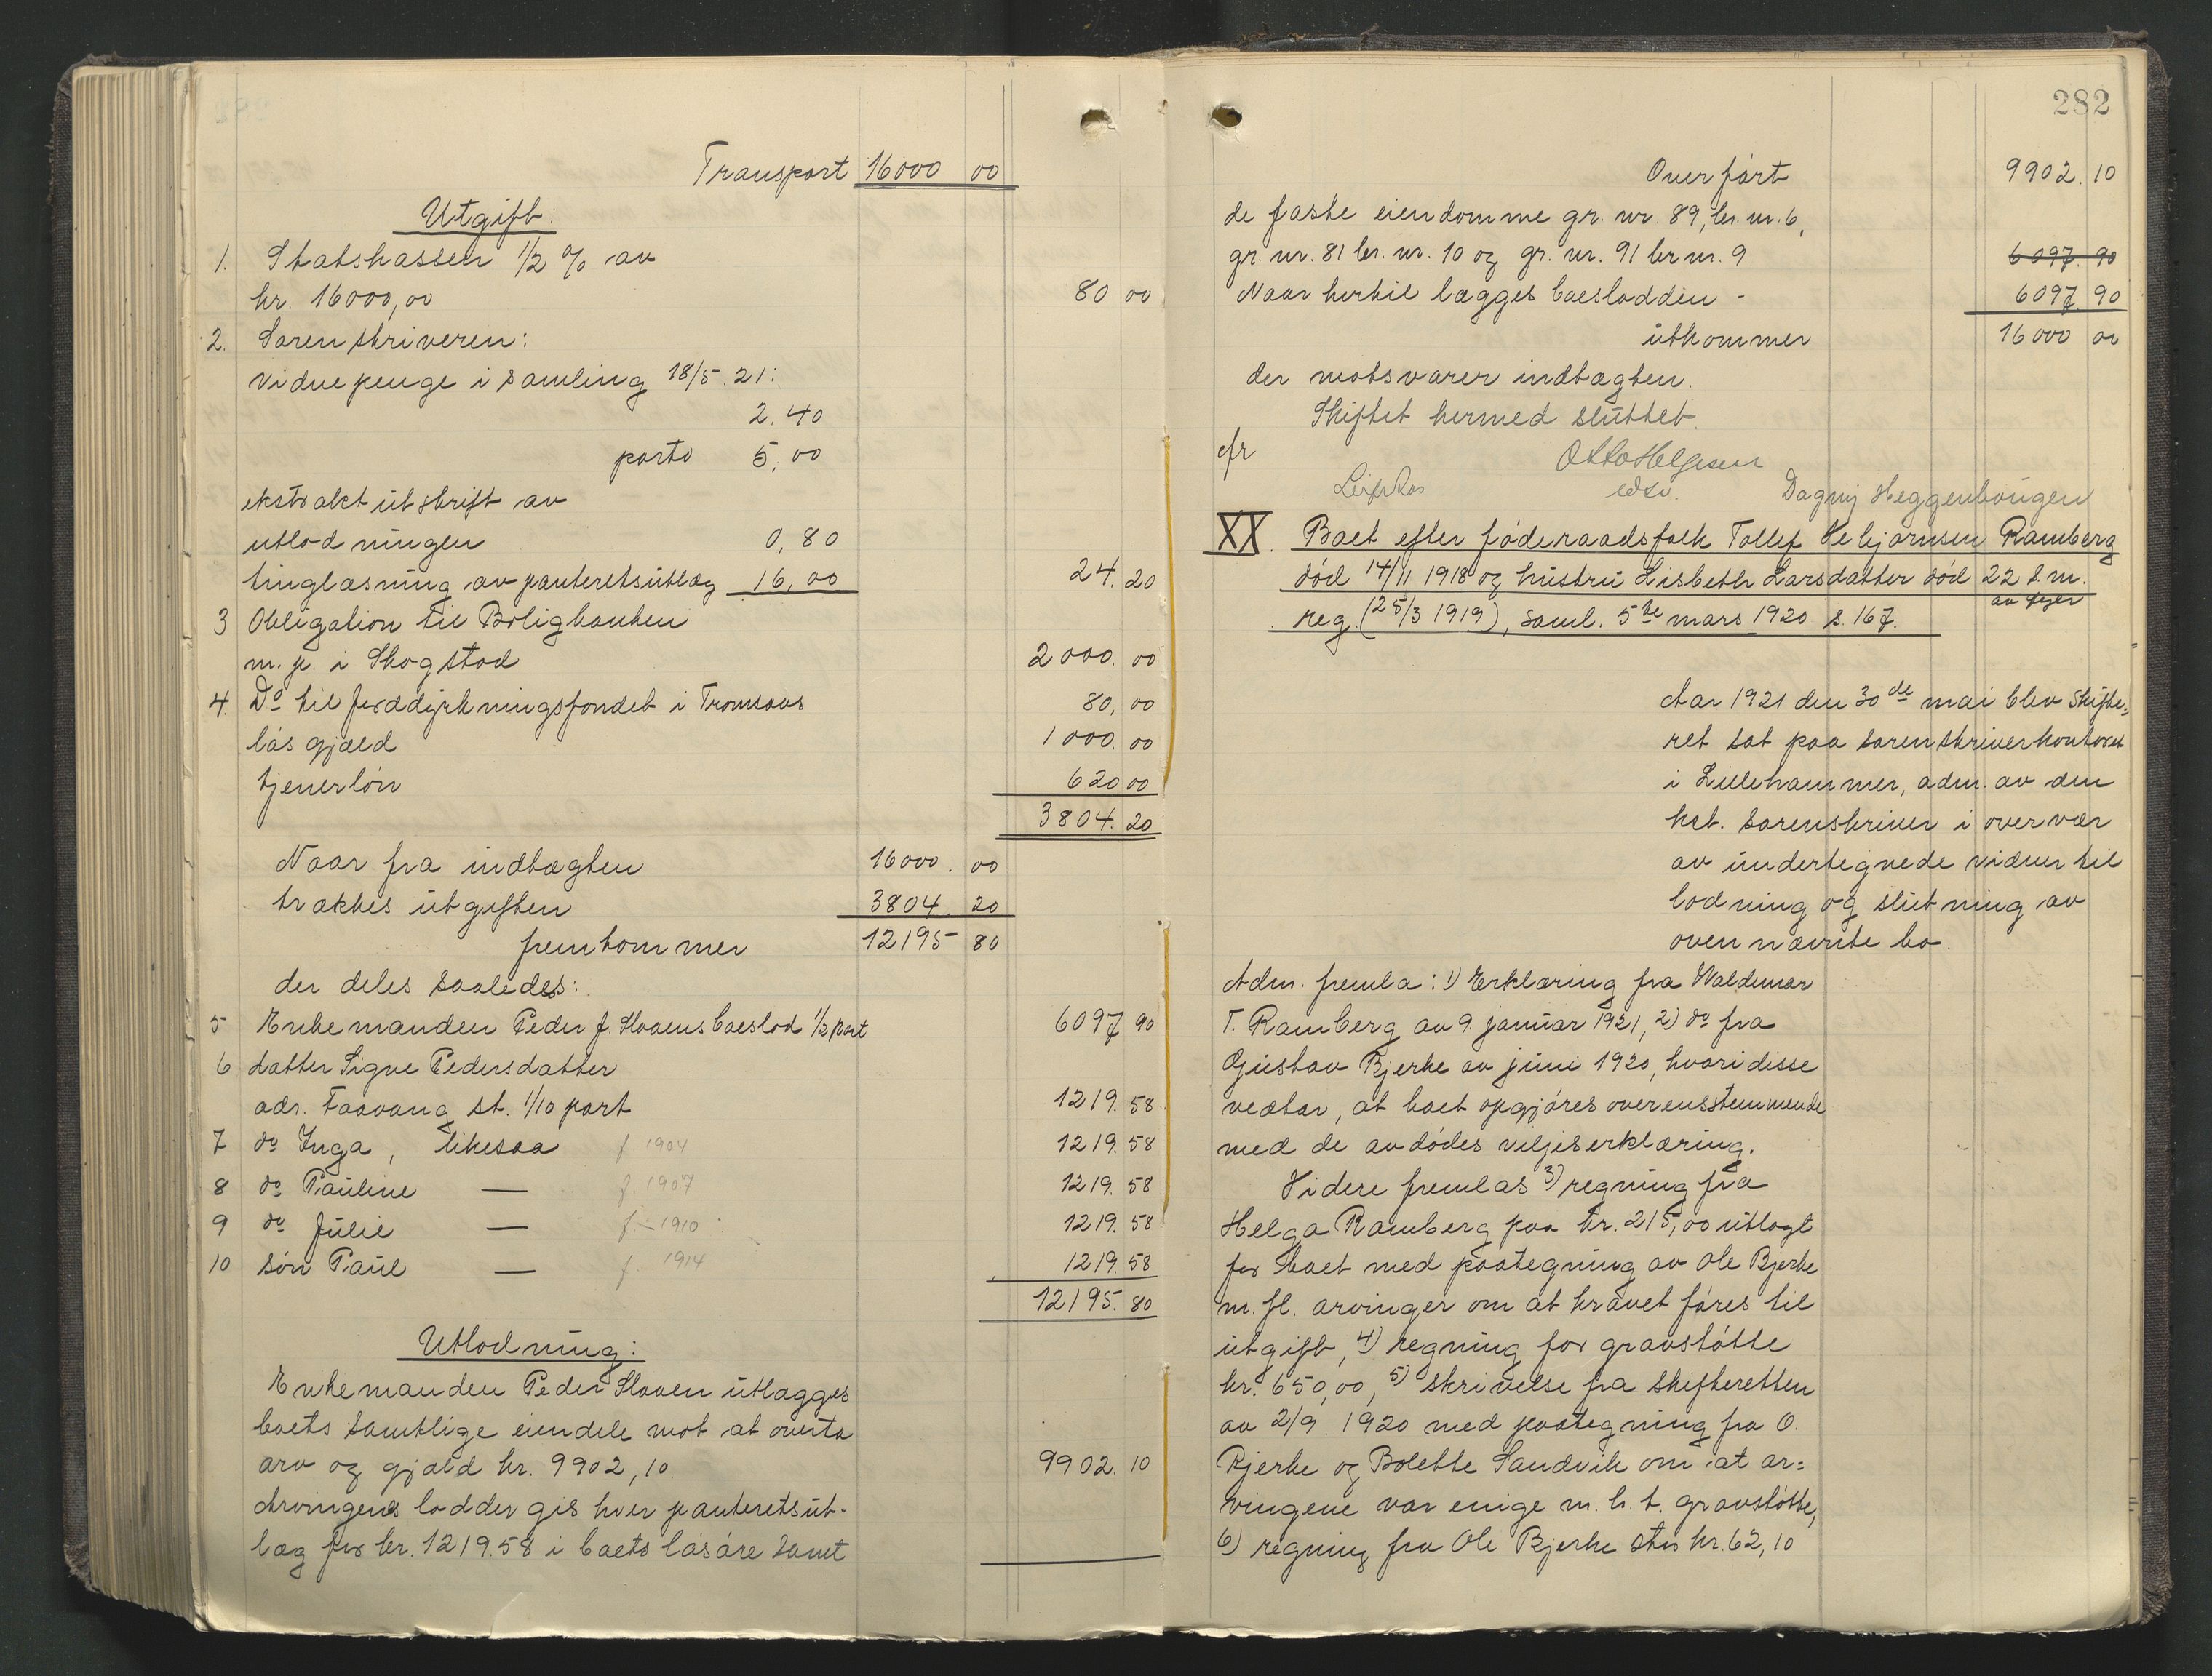 Transport 16000 00
Utgift:
1. Statskassen 1/2 % av
kr. 16000,00 80 00
2. Sorenskriveren:
vidnepenge i samling 18/5.21:
2.40
porto 5,00
ekstraktutskrift av
utlodningen 0,80
tinglæsning av panteretsutlæg 16,00 24.20
3 Obligation til Boligbanken
m. p. i Skogstad 2000.00
4. Do til jorddyrkningsfondet i Tromsaas 80,00
løs gjæld 1000.00
tjenerløn 620 00
3804.20
Naar fra indtægten 16000.00
trækkes utgiften 3804.20
fremkommer 12195 80
der deles saaledes:
5 Enkemanden Peder J. Slaaens boeslod 1/2 part 6097 90
6 datter Signe Pedersdatter
adr. Faavang st. 1/10 part 1219.58
7 do Inga, likesaa f 1904 1219.58
8 do Pauline — f. 1907 1219.58
9 do Julie — f. 1910 1219.58
10 søn Paul — f. 1914 1219.58
12195.80
Utlodning:
Enkemanden Peder Slaaen utlægges
boets samtlige eiendele mot at overta
arv og gjæld kr. 9902,10. 9902.10
Arvingenes lodder gis hver panteretsut-
læg for kr. 1219.58 i boets løsøre samt
282
Overført 9902.10
de faste eiendomme gr. nr. 89, br. nr. 6,
gr. nr. 81 br. nr. 10 og gr. nr. 91 br nr. 9 6097.90
Naar hertil lægges boeslodden - 6097.90
utkommer 16000 00
der motsvarer indtægten.
Skiftet hermed sluttet.
efr Otto Helgesen
edsv. Dagny Heggenhougen
XX. Boet efter føderaadsfolk Tollef Vebjørnsen Ramberg
død 14/11 1918 og hustru Lisbeth Larsdatter død 22 s.m.
av Øyer
reg. (25/3 1919), saml. 5te mars 1920 s. 167.
Aar 1921 den 30de mai blev skifte=
ret sat paa sorenskriverkontoret
i Lillehammer, adm. av den
kst. sorenskriver i overvær
av undertegnede vidner til
lodning og slutning av
ovennævnte bo.
Adm. fremla: 1) Erklæring fra Waldemar
T. Ramberg av 9. januar 1921, 2) do fra
Gustav Bjerke av juni 1920, hvori disse
vedtar, at boet opgjøres overensstemmende
med de avdødes viljeserklæring.
Videre fremlas 3) regning fra
Helga Ramberg paa kr. 215,00 utlagt
for boet med paategning av Ole Bjerke
m. fl. arvinger om at kravet føres til
utgift, 4) regning for gravstøtte
kr. 650,00, 5) skrivelse fra skifteretten
av 2/9. 1920 med paategning fra O.
Bjerke og Bolette Sandvik om at ar=
vingene var enige m. h. t. gravstøtte,
6) regning fra Ole Bjerke stor kr. 62,10